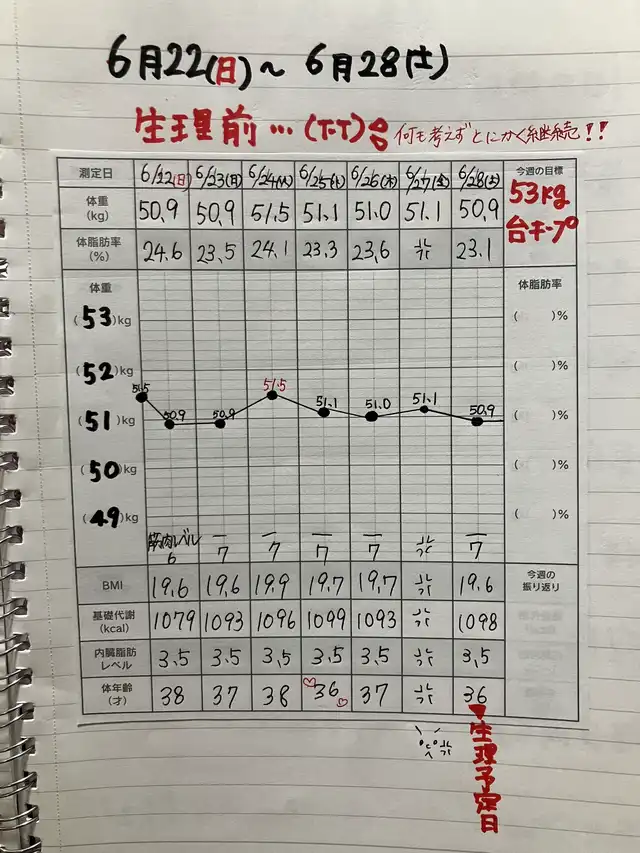 6月22(日)～6月28(土)
生理前…(T-T) 何も考えずとにかく継続!!
測定日 6/22(日) 6/23(月) 6/24(火) 6/25(水) 6/26(木) 6/27(金) 6/28(土) 今週の目標
体重(kg) 50.9 50.9 51.5 51.1 51.0 51.1 50.9 53kg台キープ
体脂肪率(%) 24.6 23.5 24.1 23.3 23.6 23.1
体重 体脂肪率
(53)kg ( )%
(52)kg ( )%
51.5 50.9 50.9 51.5 51.1 51.0 51.1 50.9
(51)kg ( )%
(50)kg ( )%
(49)kg ( )%
筋肉レベル6 7 7 7 7 7
BMI 19.6 19.6 19.9 19.7 19.7 19.6 今週の振り返り
基礎代謝(kcal) 1079 1093 1096 1099 1093 1098
内臓脂肪レベル 3.5 3.5 3.5 3.5 3.5 3.5
体年齢(才) 38 37 38 36 37 36
生理予定日